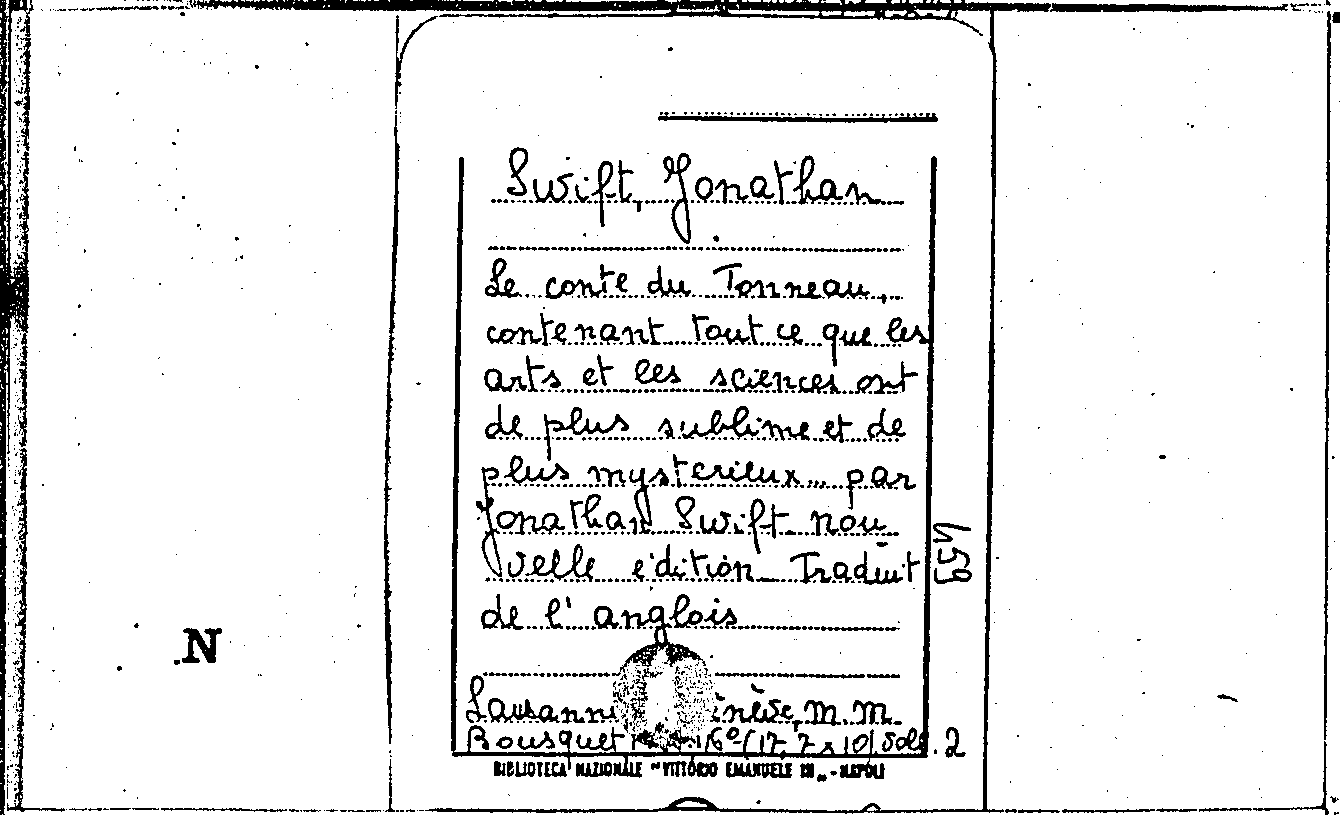 Swift, Jonathan
Le conte du Tonneau,
contenant tout ce que les
arts et les sciences ont
de plus sublime et de
plus mysterieux... par
Jonathan Swift. nou
velle édition Traduit
de l'anglois
459
N
M. M.
Bousquet 16° (17,7 x 10) voll. 2
BIBLIOTECA NAZIONALE "VITTORIO EMANUELE III" - NAPOLI